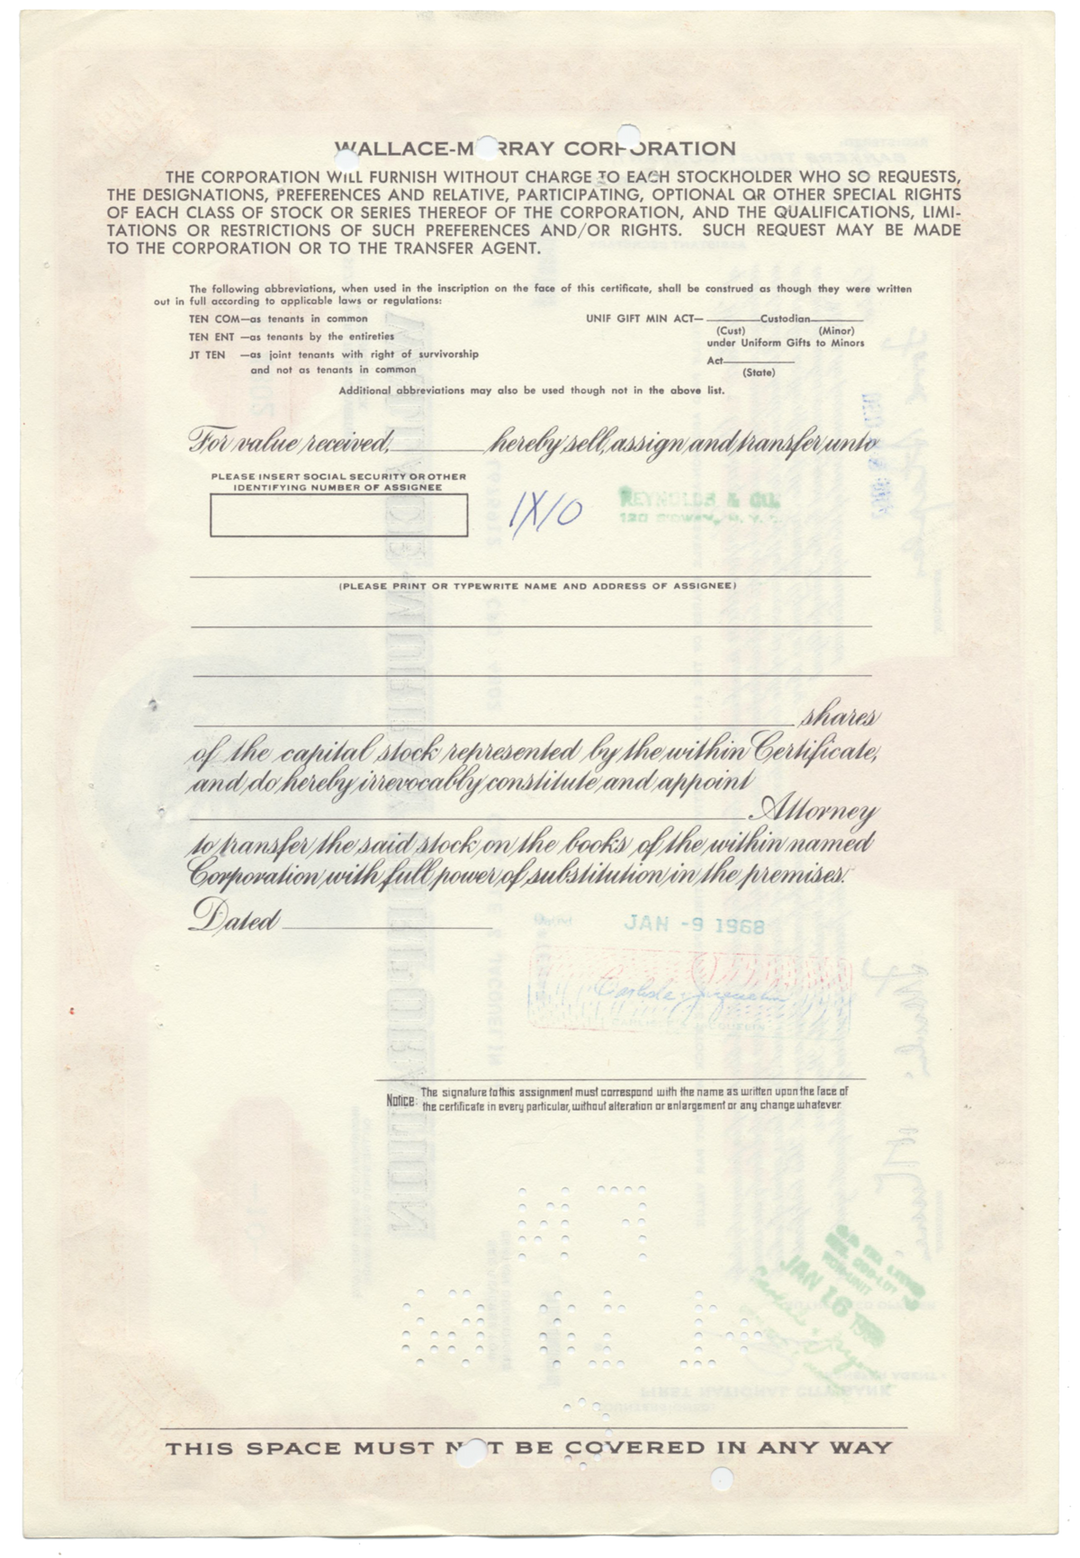 WALLACE-MURRAY CORPORATION
THE CORPORATION WILL FURNISH WITHOUT CHARGE TO EACH STOCKHOLDER WHO SO REQUESTS,
THE DESIGNATIONS, PREFERENCES AND RELATIVE, PARTICIPATING, OPTIONAL OR OTHER SPECIAL RIGHTS
OF EACH CLASS OF STOCK OR SERIES THEREOF OF THE CORPORATION, AND THE QUALIFICATIONS, LIMI-
TATIONS OR RESTRICTIONS OF SUCH PREFERENCES AND/OR RIGHTS. SUCH REQUEST MAY BE MADE
TO THE CORPORATION OR TO THE TRANSFER AGENT.
The following abbreviations, when used in the inscription on the face of this certificate, shall be construed as though they were written
out in full according to applicable laws or regulations:
TEN COM—as tenants in common
TEN ENT —as tenants by the entireties
JT TEN —as joint tenants with right of survivorship
and not as tenants in common
UNIF GIFT MIN ACT— Custodian
(Cust) (Minor)
under Uniform Gifts to Minors
Act
(State)
Additional abbreviations may also be used though not in the above list.
For value received, hereby sell, assign and transfer unto
PLEASE INSERT SOCIAL SECURITY OR OTHER
IDENTIFYING NUMBER OF ASSIGNEE
REYNOLDS & CO.
120 BDWAY, N. Y. C.
(PLEASE PRINT OR TYPEWRITE NAME AND ADDRESS OF ASSIGNEE)
shares
of the capital stock represented by the within Certificate,
and do hereby irrevocably constitute and appoint
Attorney
to transfer the said stock on the books of the within named
Corporation with full power of substitution in the premises.
Dated
JAN -9 1968
Carlisle & Jacquelin
Notice: The signature to this assignment must correspond with the name as written upon the face of
the certificate in every particular, without alteration or enlargement or any change whatever
JAN 16
THIS SPACE MUST NOT BE COVERED IN ANY WAY